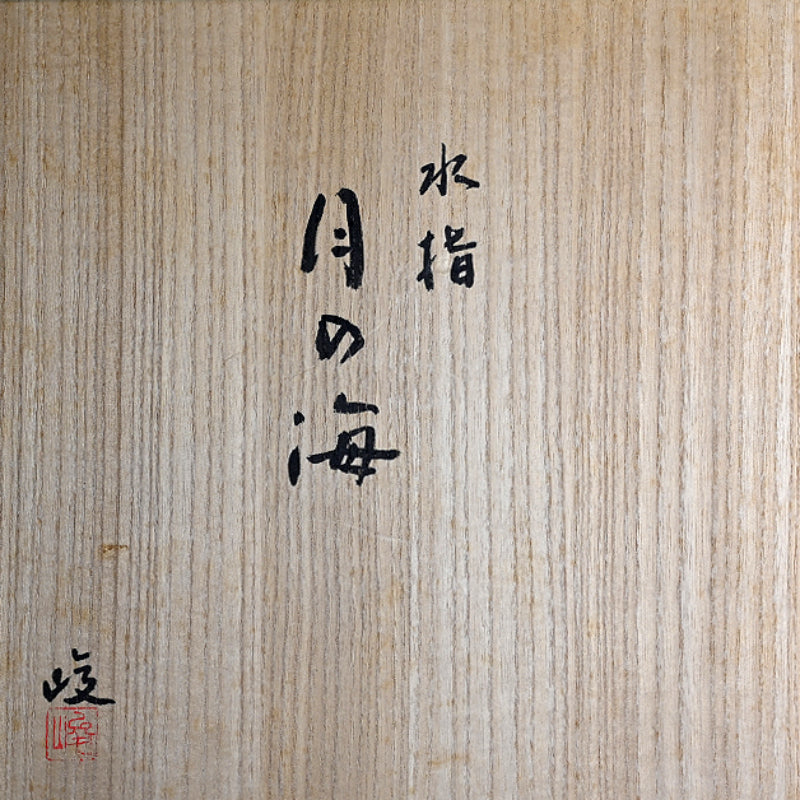 水指
月の海
峻